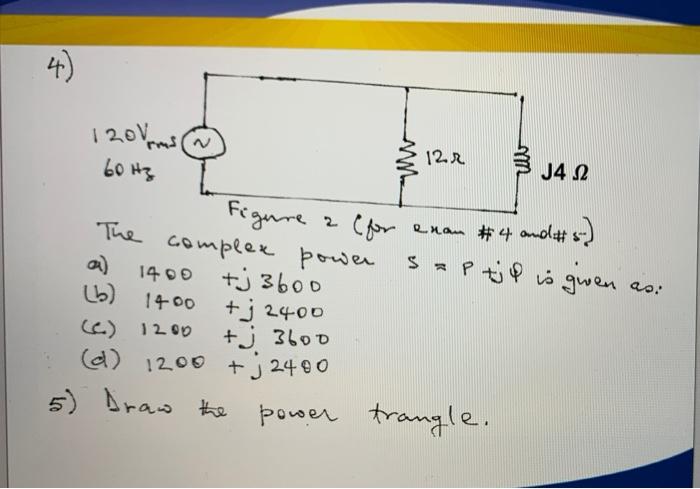 4)
120Vrms
60 Hz
12Ω
J4 Ω
Figure 2 (for exam #4 and #5)
The complex power S = P + jQ is given as:
a) 1400 + j 3600
(b) 1400 + j 2400
(c) 1200 + j 3600
(d) 1200 + j 2400
5) Draw the power trangle.